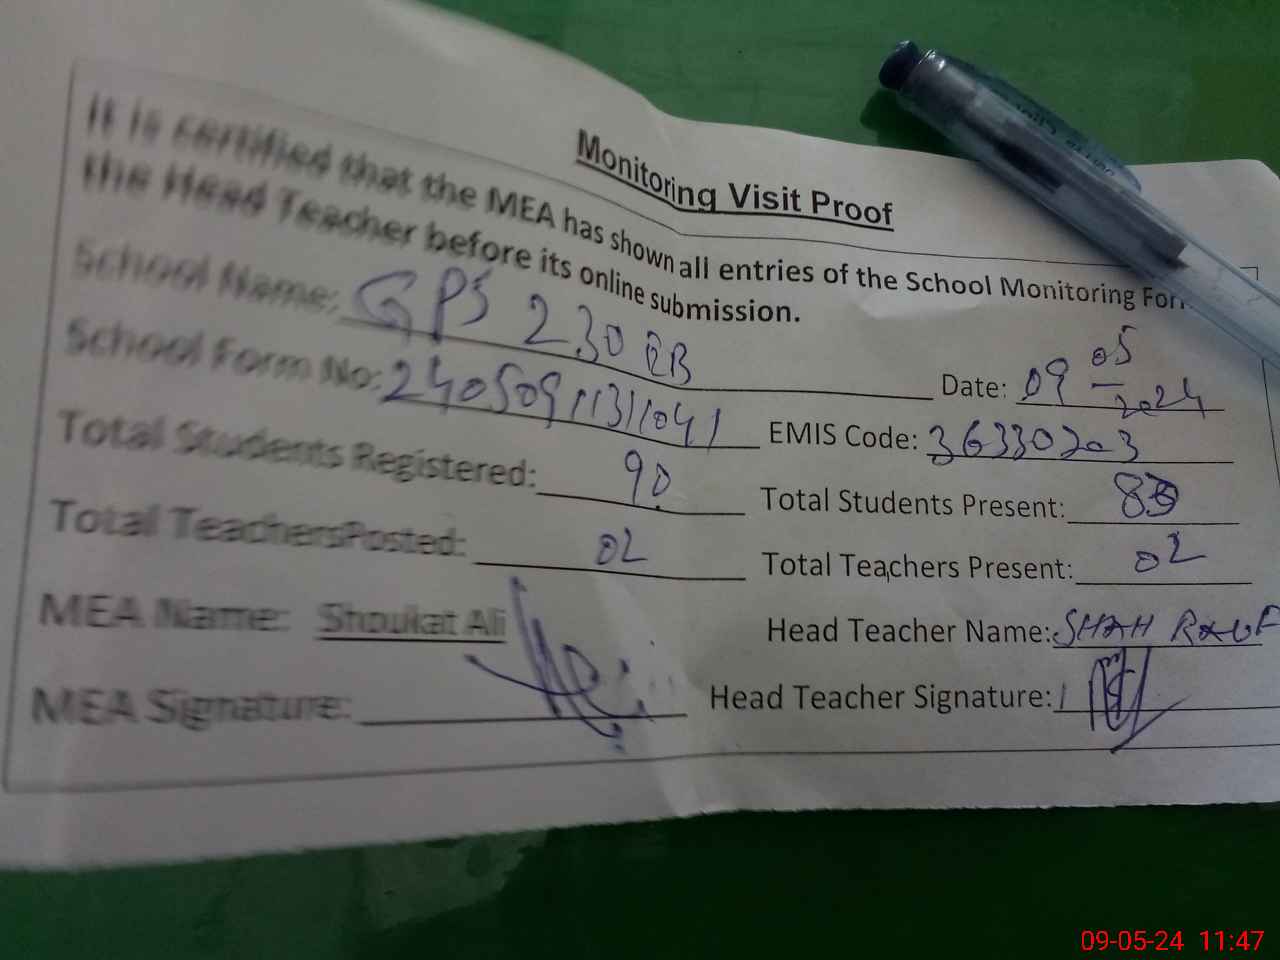 Monitoring Visit Proof
It is certified that the MEA has shown all entries of the School Monitoring For
the Head Teacher before its online submission.
School Name: GPS 230 RB Date: 09 05 2024
School Form No: 24050911311041 EMIS Code: 36330203
Total Students Registered: 90 Total Students Present:
Total TeachersPosted: 02 Total Teachers Present: 02
MEA Name: Shoukat Ali Head Teacher Name: SHAH RAUF
MEA Signature: Head Teacher Signature:
09-05-24 11:47